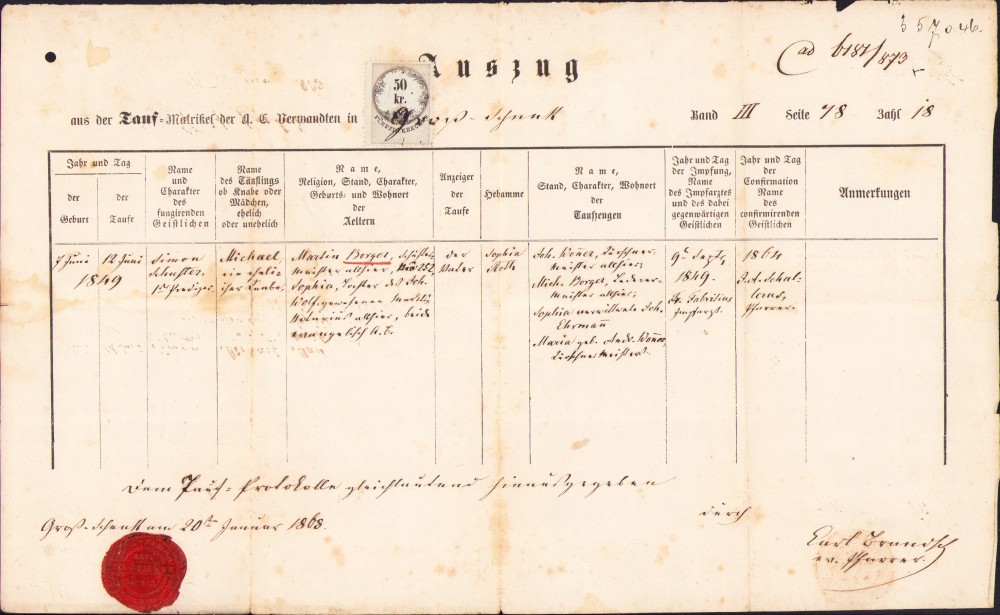 3570 46.
ad 6181/873
Auszug
50
kr.
aus der Tauf-Matrikel der A. C. Verwandten in Groß-Schenk Band III Seite 78 Zahl 18
Jahr und Tag
der Geburt
der Taufe
Name
und
Charakter
des
fungirenden
Geistlichen
Name
des Täuflings
ob Knabe oder
Mädchen,
ehelich
oder unehelich
Name,
Religion, Stand, Charakter,
Geburts- und Wohnort
der
Aeltern
Anzeiger
der
Taufe
Hebamme
Name,
Stand, Charakter, Wohnort
der
Taufzeugen
Jahr und Tag
der Impfung,
Name
des Impfarztes
und des dabei
gegenwärtigen
Geistlichen
Jahr und Tag
der
Confirmation
Name
des
confirmirenden
Geistlichen
Anmerkungen
7 Juni
12 Juni
1849
Simon
Schuster
Prediger
Michael
ein eheli-
cher Knabe
Martin Borger,
meister allhier, Nro 252,
Sophia, Tochter des Joh.
Wolf, gewesenen
Notarius allhier, beide
evangelisch A. C.
der
Vater
Sophia
Roth
Joh. Kürschner-
meister allhier;
Mich. Borger, Lederer-
meister allhier;
Sophia verwittwete Joh.
Ehrmann
Maria geb. Andr.
Kürschnermeisters
9 Sept,
1849.
Fr. Fabritius
Impfarzt.
1864
Pfarrer.
Dem Tauf-Protokolle gleichlautend hinausgegeben
durch
Groß-Schenk am 20ten Januar 1868.
Karl Brandsch
ev. Pfarrer.